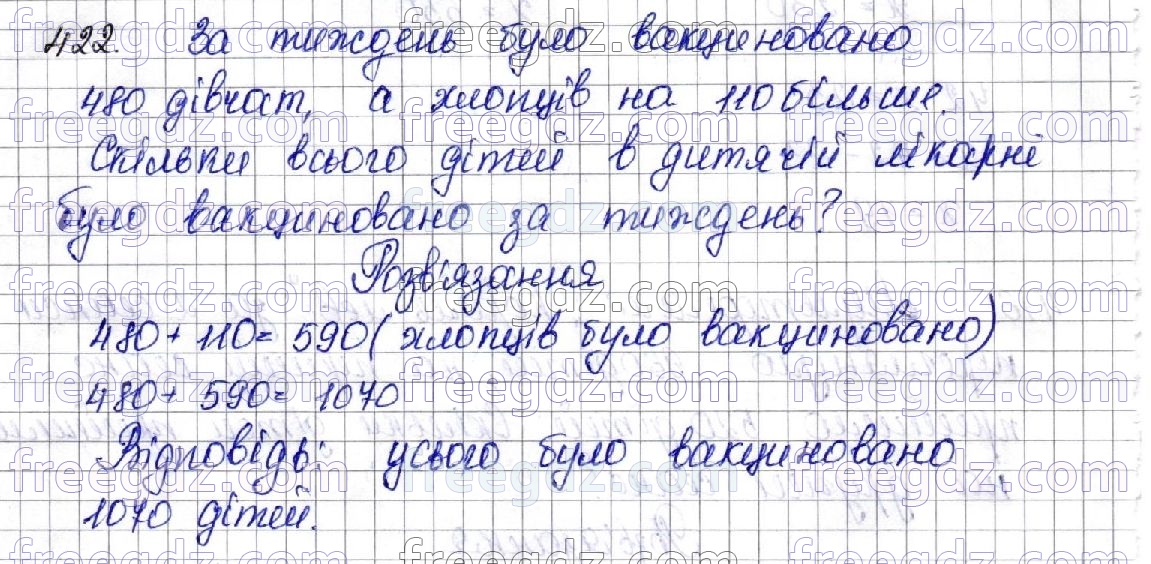 422. За тиждень було вакциновано
480 дівчат, а хлопців на 110 більше.
Скільки всього дітей в дитячій лікарні
було вакциновано за тиждень?
Розв'язання
480 + 110 = 590 (хлопців було вакциновано)
480 + 590 = 1070
Відповідь: усього було вакциновано
1070 дітей.
freegdz.com